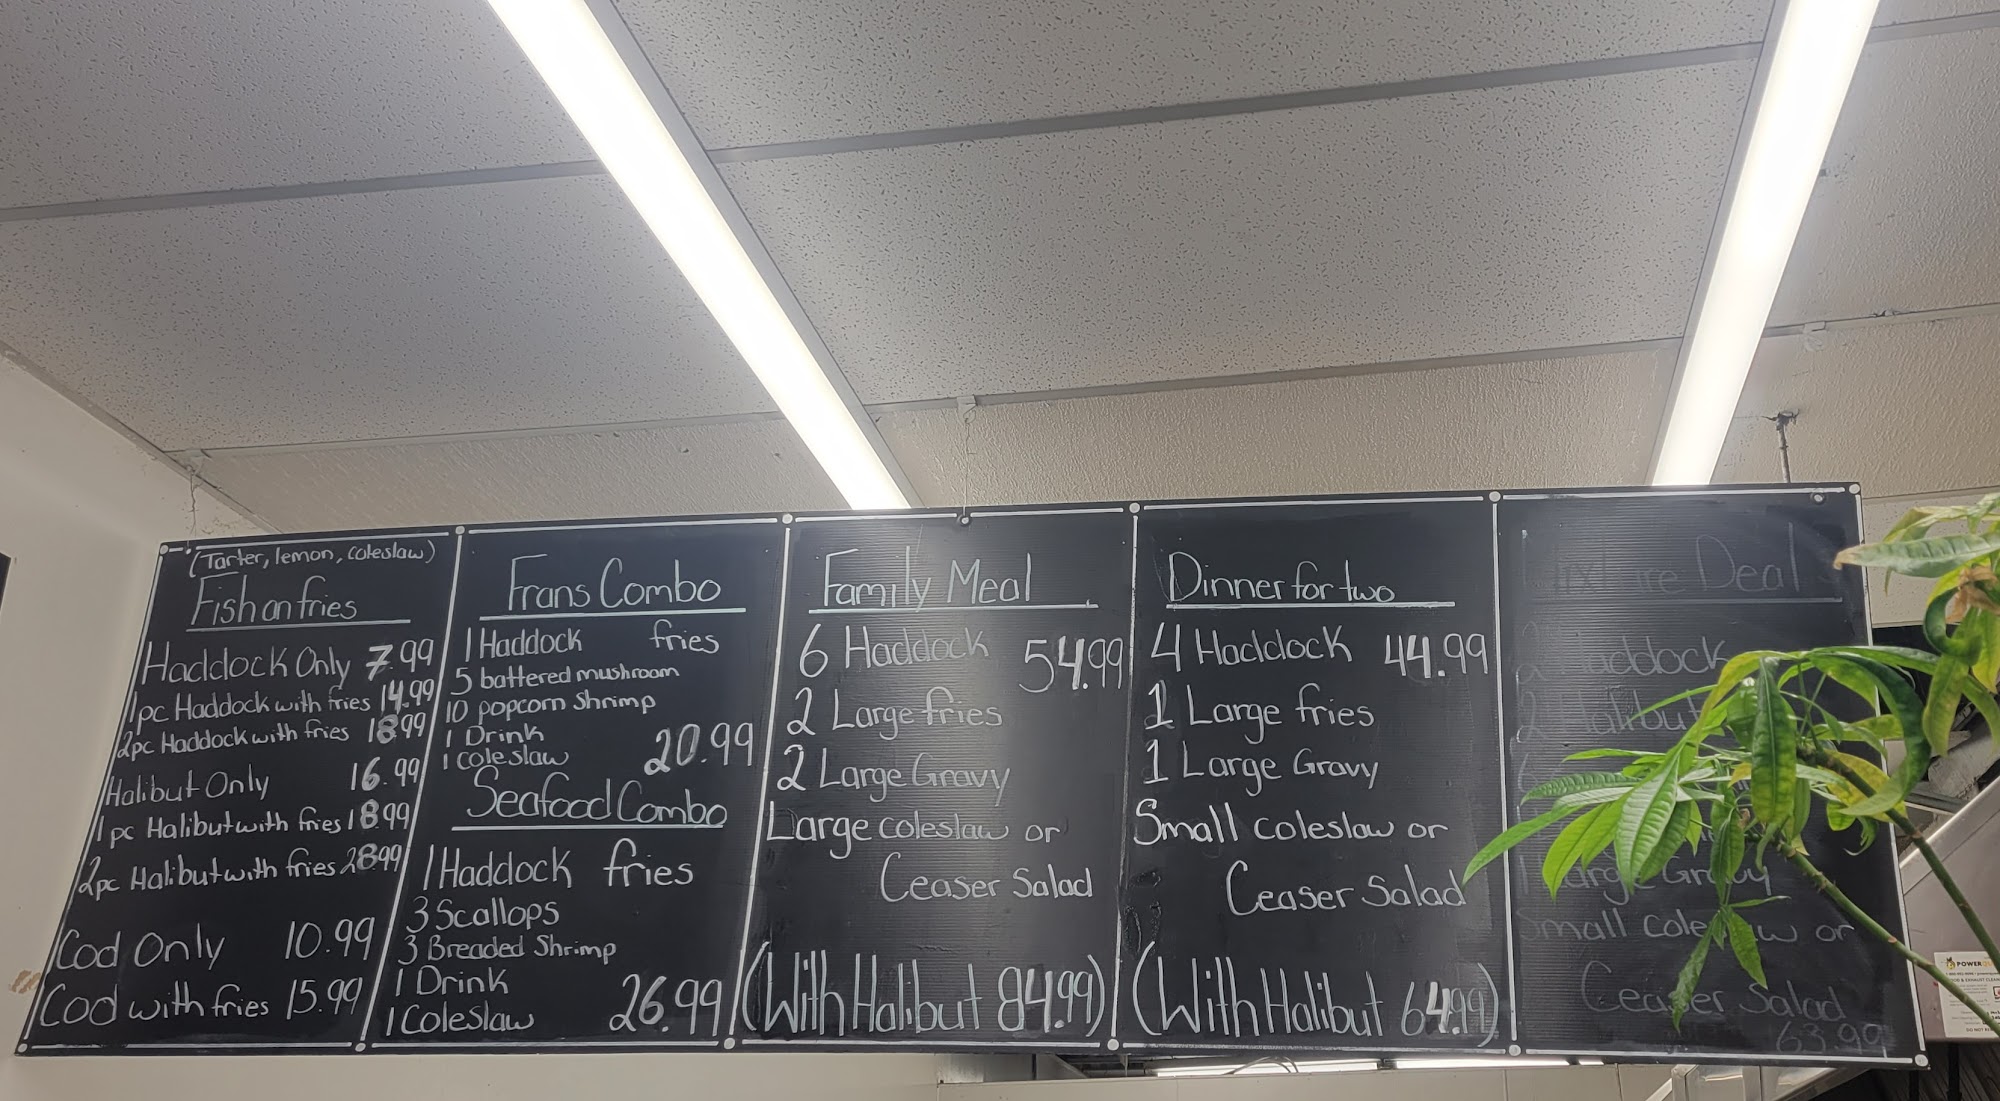 (Tarter, lemon, coleslaw)
Fish an fries
Haddock Only 7.99
1pc Haddock with fries 14.99
2pc Haddock with fries 18.99
Halibut Only 16.99
1 pc Halibut with fries 18.99
2pc Halibut with fries 28.99
Cod Only 10.99
Cod with fries 15.99
Frans Combo
1 Haddock fries
5 battered mushroom
10 popcorn Shrimp
1 Drink
1 coleslaw 20.99
Seafood Combo
1 Haddock fries
3 Scallops
3 Breaded Shrimp
1 Drink
1 Coleslaw 26.99
Family Meal
6 Haddock 54.99
2 Large fries
2 Large Gravy
Large coleslaw or
Ceaser Salad
(With Halibut 84.99)
Dinner for two
4 Haddock 44.99
1 Large fries
1 Large Gravy
Small coleslaw or
Ceaser Salad
(With Halibut 64.99)
Deal
2 Haddock
2 Halibut
1 Large Gravy
Small coleslaw or
Ceaser Salad
63.99